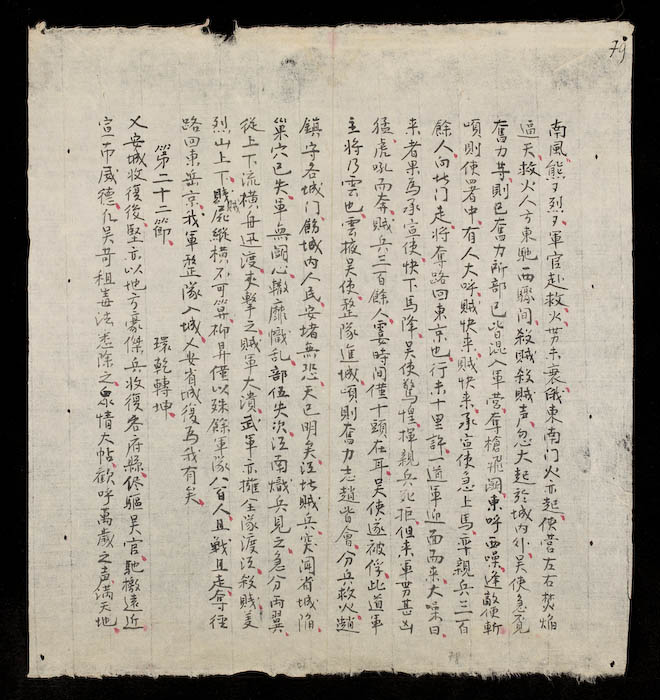 79
南風熊〻烈〻軍官赴救火勢未衰俄東南門火亦起使營左右焚焰
逼天救火人方東馳西驟間殺賊殺賊声忽大起於城内外吴使急覓
奮力等則已奮力所部已皆混入軍營奪槍飛鬪東呼西噪逢敵便斬
頃則使署中有人大呼賊快来賊快来承宣使急上馬率親兵三百
餘人向北门走将奪路回東京也行未十里許一道軍迎面而来大噪曰
来者果為承宣使快下馬降吴使驚惶揮親兵死拒但来軍势甚凶
猛虎吼而奔賊兵三百餘人霎時間僅十頭在耳吴使遂被俘此道軍
主将乃雲也雲掖吴使整隊進城頃則奮力志趙皆會分兵救火趙
鎮守各城门飭城内人民安堵無恐天已明矣江北賊兵突聞省城陷
巢穴已失軍無鬪心轍靡幟乱部伍失次江南熾兵見之急分両翼
從上下流横舟迅渡夾擊之賊軍大潰武軍亦擁全隊渡江殺賊美
烈山上下賊屍縱横不可筭抑昇僅以殊餘軍隊八百人且戰且走夺径
路回東岳京我軍整隊入城乂安省城復為我有矣
第二十二節　環乾轉坤
乂安城收復後堅亦以地方豪傑兵收復各府縣俘驅吴官馳檄遠近
宣布威德凡吴苛租毒法悉除之衆情大帖歡呼萬歲之声満天地
78